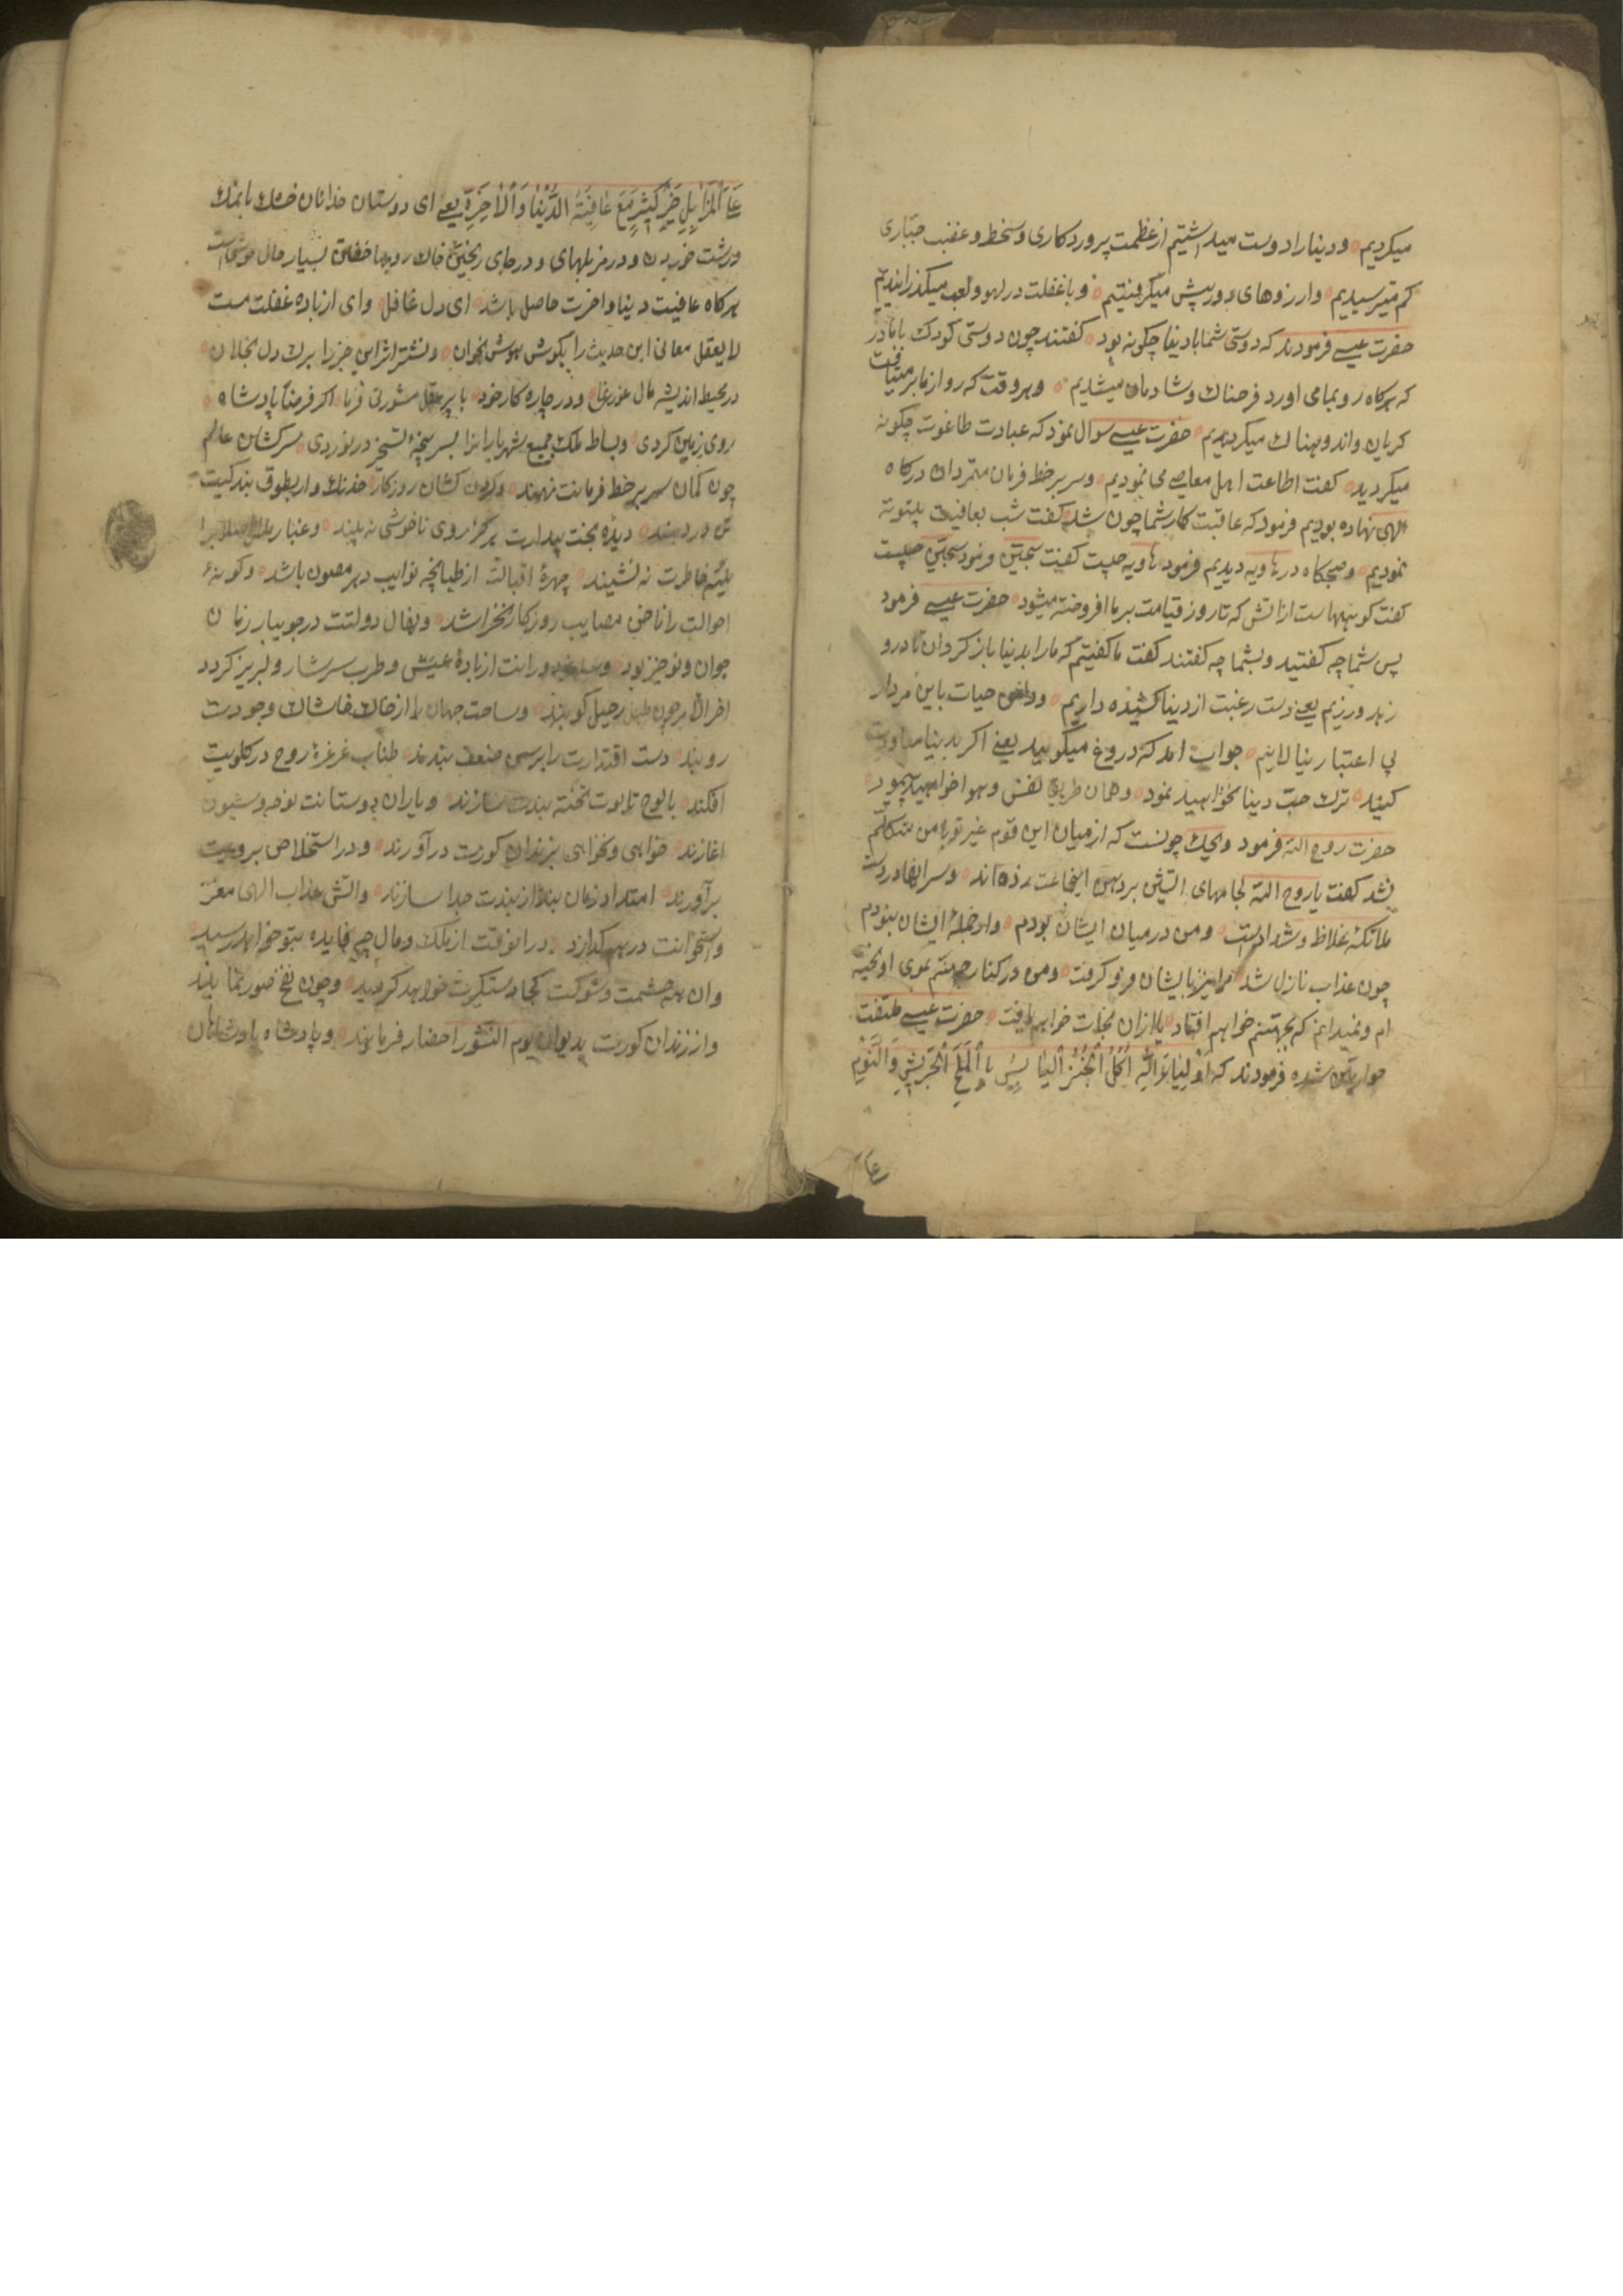 میکردیم و دینا را دوست میداشتیم از عظمت پروردکاری و سخط و غضب جبّاری
کم میترسیدیم و ارزوهای دور پیش میکرفتیم و با غفلت در لهو و لعب میکذرانیدیم
حضرت عیسی فرمودند که دوستی شما با دینا چکونه بود کفتند چون دوستی کودک با مادر
که هرکاه رو بمامی اورد فرحناک و شادمان میشدیم و هر وقت که رو از ما برمیتافت
کریان و اندوهناک میکردیدیم حضرت عیسی سوال نمود که عبادت طاغوت چکونه
میکردید کفت اطاعت اهل معاصی می نمودیم و سر بر خط فرمان متمردان درکاه
الهی نهاده بودیم فرمود که عاقبت کار شما چون شد کفت شب بعافیت بیتوته
نمودیم و صبحکاه در هاویه دیدیم فرمود هاویه چیست کفت سجّین فرمود سجّین چیست
کفت کوههاست از اتش که تا روز قیامت بر ما افروخته میشود حضرت عیسی فرمود
پس شما چه کفتید و بشما چه کفتند کفت ما کفتیم که ما را بدینا باز کردان تا درو
زهد ورزیم یعنی دست رغبت از دینا کشیده داریم و دامن حیات باین مردار
بی اعتبار نیالاییم جواب امد که دروغ میکویید یعنی اکر بدینا معاودت
کنید ترک حب دینا نخواهید نمود و همان طریق نفس و هوا خواهید پیمود
حضرت روح الله فرمود ویحک چونست که از میان این قوم غیر تو با من متکلّم
نشد کفت یا روح الله لجامهای اتشین بر دهن اینجماعت زده اند و سر انها در دست
ملائکهٔ غلاظ و شداد است و من در میان ایشان بودم و از جملهٔ ایشان نبودم
چون عذاب نازل شد مرا نیز با ایشان فرو کرفت و من در کنار جهنّم بموی اویخته
ام و نمیدانم که بجهنّم خواهم افتاد یا ازان نجات خواهم یافت حضرت عیسی ملتفت
حواریّین شده فرمودند که اَوْلِیٰاءَ اللّٰهِ اَکْلُ الْخُبْزِ الْیٰابِسِ بِالْمِلْحِ الْجَرِیْشِ وَالنَّوْمِ
عَا
عَا الْمَزٰابِلِ خَیْرٌ کَثِیْرٌ مَعَ عٰافِیَةِ الدُّنْیٰا وَالْاٰخِرَةِ یعنی ای دوستان خدا نان خشک با نمک
درشت خوردن و در مزبلهای و در جای ریختن خاک روبها خفتن بسیار مال خوشی است
هرکاه عافیت دینا و اخرت حاصل باشد ای دل غافل و ای از باده غفلت مست
لا یعقل معانی این حدیث را بکوش هوش بخوان و نشتر اثر این خبر را برک دل بخلان
در محیط اندیشه مال غور نما و در چاره کار خود با پیر عقل مشورتی فرما اکر فرضا پادشاه
روی زمین کردی و بساط ملک جمیع شهریارانرا بسر پنجهٔ تسخیر در نوردی سرکشان عالم
چون کمان سر بر خط فرمانت نهند و کردن کشان روزکار خدنک وار بطوق بندکیت
تن در دهند دیدهٔ بخت بیدارت هرکز روی ناخوشی نه بیند و غبار ملال
خاطرت نه نشیند چهرهٔ اقبالت از طپانچه نوایب دهر مصون باشد و کونهٔ
احوالت را ناخن مصایب روزکار نخراشد و نهال دولتت در جویبار زمان
جوان و نوخیز بود و دورانت از بادهٔ عیش و طرب سرشار و لبریز کردد
اخر الامر چون طبل رحیل کوبند و ساحت جهان را از خاک خاشاک وجودت
روبند دست اقتدارت را برسن ضعف بندند طناب غرغرهٔ روح در کلویت
افکند با لوح تابوت تخته بندت سازند و یاران و دوستانت نوحه و شیون
اغازند خواهی و نخواهی بزندان کورت در آورند و در استخلاص برویت
برآورند امتداد زمان بند از بندت جدا سازند و اتش عذاب الهی مغز
و استخوانت در هم کدازد در انوقت از ملک و مال چه فایده بتو خواهد رسید
وان همه حشمت و شوکت کجا دستکیرت خواهد کردید و چون نفخ صور نمایند
و از زندان کورت بدیوان یوم النشور احضار فرمایند و پادشاه پادشاهان